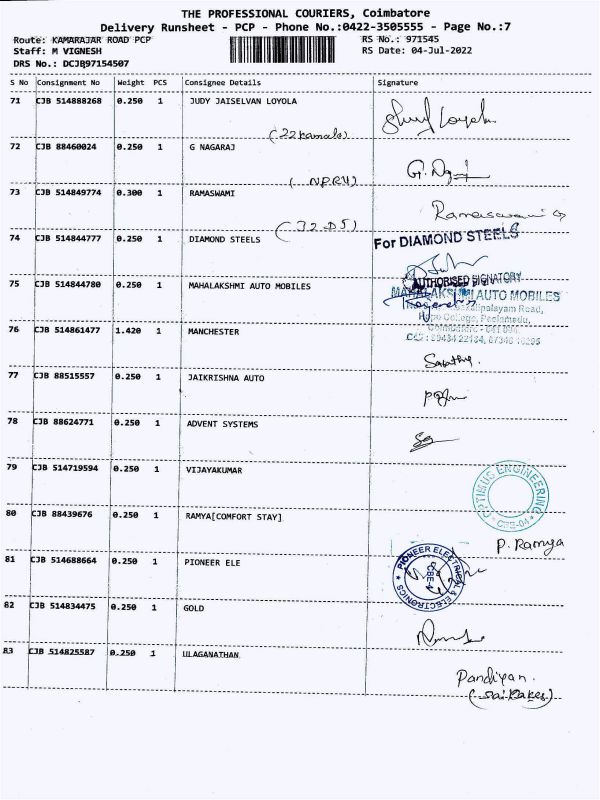 THE PROFESSIONAL COURIERS, Coimbatore
Delivery Runsheet - PCP - Phone No.:0422-3505555 - Page No.:7
Route: KAMARAJAR ROAD PCP RS No.: 971545
Staff: M VIGNESH RS Date: 04-Jul-2022
DRS No.: DCJB97154507
S No Consignment No Weight PCS Consignee Details Signature
71 CJB 514888268 0.250 1 JUDY JAISELVAN LOYOLA
(22 Kamala)
72 CJB 88460024 0.250 1 G NAGARAJ
73 CJB 514849774 0.300 1 RAMASWAMI
Ramaswami
74 CJB 514844777 0.250 1 DIAMOND STEELS For DIAMOND STEELS
AUTHORISED SIGNATORY
75 CJB 514844780 0.250 1 MAHALAKSHMI AUTO MOBILES MAHALAKSHMI AUTO MOBILES
Road,
College, Peelamedu,
76 CJB 514861477 1.420 1 MANCHESTER
77 CJB 88515557 0.250 1 JAIKRISHNA AUTO
78 CJB 88624771 0.250 1 ADVENT SYSTEMS
79 CJB 514719594 0.250 1 VIJAYAKUMAR
OPTIMUS ENGINEERING
CBE-04
80 CJB 88439676 0.250 1 RAMYA[COMFORT STAY]
P. Ramya
81 CJB 514688664 0.250 1 PIONEER ELE
PIONEER ELECTRICAL & ELECTRONICS
82 CJB 514834475 0.250 1 GOLD
83 CJB 514825587 0.250 1 ULAGANATHAN
Pandiyan.
(Sai Cakes)